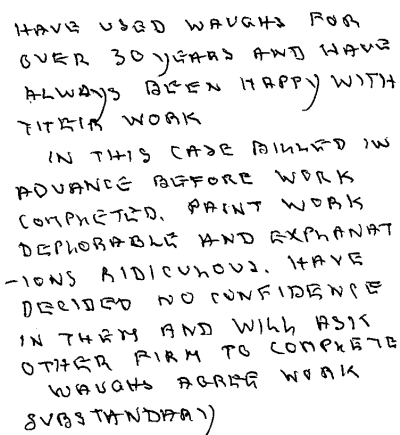 HAVE USED WAUGHS FOR
OVER 30 YEARS AND HAVE
ALWAYS BEEN HAPPY WITH
THEIR WORK
IN THIS CASE BILLED IN
ADVANCE BEFORE WORK
COMPLETED. PAINT WORK
DEPLORABLE AND EXPLANAT
-IONS RIDICULOUS. HAVE
DECIDED NO CONFIDENCE
IN THEM AND WILL ASK
OTHER FIRM TO COMPLETE
WAUGHS AGREE WORK
SUBSTANDARY